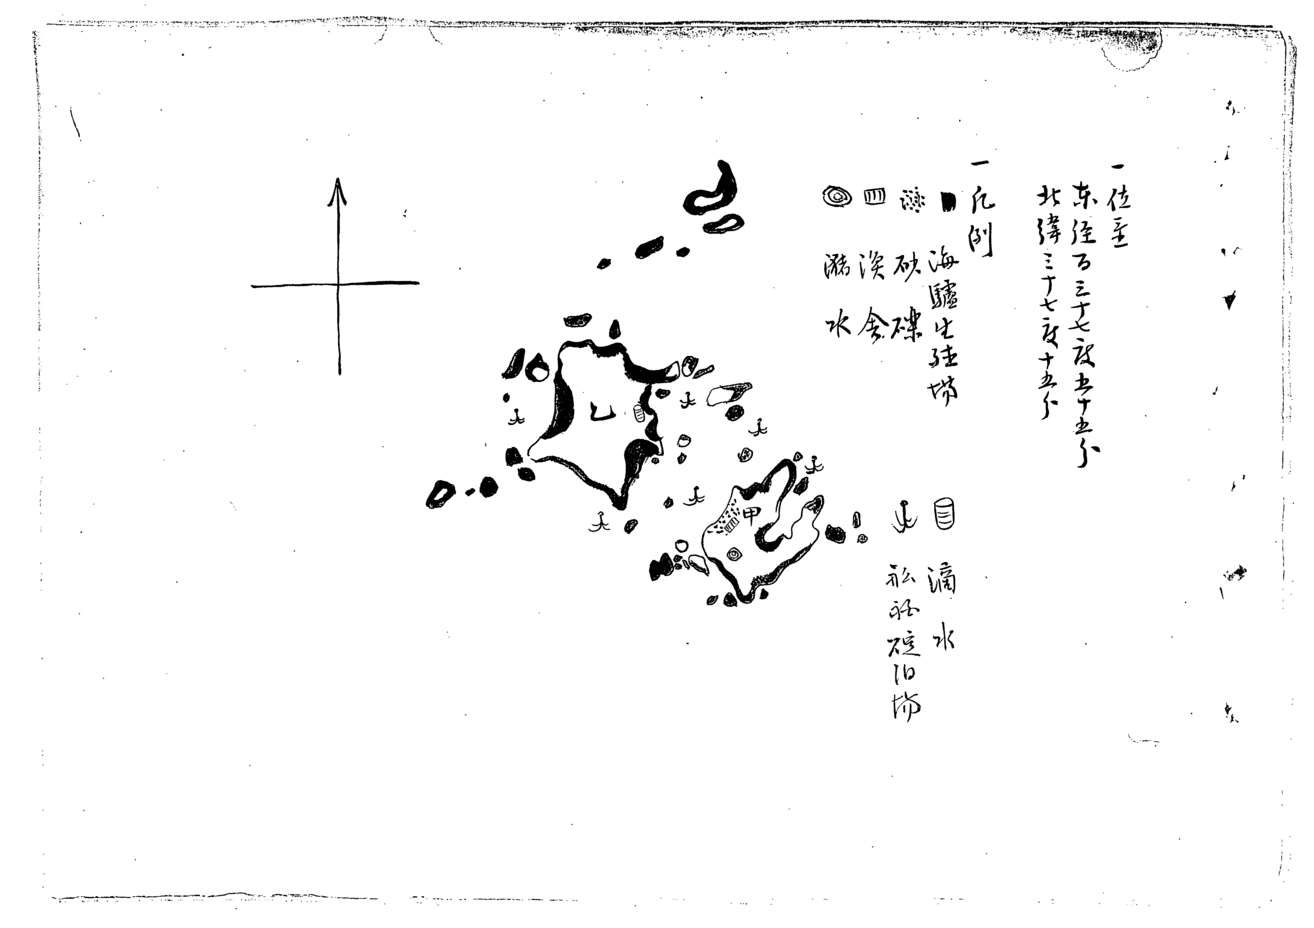 一位置
東経百三十七度五十五分
北緯三十七度十五分
一凡例
海驢生殖場
砂礫
漁舎
潴水
滴水
船舶碇泊場
乙
甲